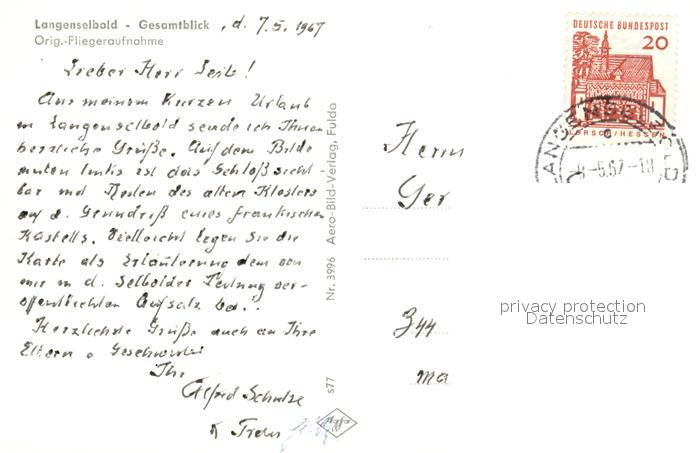 Langenselbold - Gesamtblick , d. 7.5.1967
Orig.-Fliegeraufnahme
Lieber Herr Seitz!
Aus meinem kurzen Urlaub
in Langenselbold sende ich Ihnen
herzliche Grüße. Auf dem Bilde
unten links ist das Schloß sicht-
bar mit Resten des alten Klosters
auf d. Grundriß eines fränkischen
Kastells. Vielleicht legen Sie die
Karte als Erläuterung dem von
mir in d. Selbolder Zeitung ver-
öffentlichten Aufsatz bei.
Herzlichste Grüße auch an Ihre
Eltern u Geschwister
Ihr
Alfred Schulze
Nr. 3996 Aero-Bild-Verlag, Fulda
s77
agfa
DEUTSCHE BUNDESPOST
20
LORSCH/HESSEN
-5.67-18
Herrn
Ger
344
Ma
privacy protection
Datenschutz